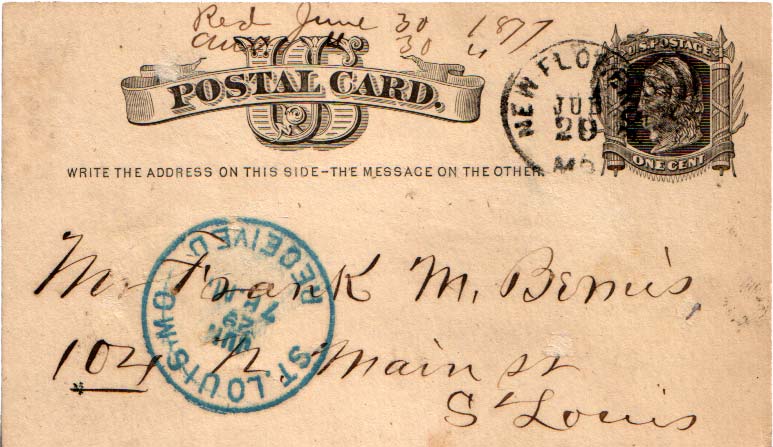 Recd June 30 1877
Ansd " 30 "
US
POSTAL CARD.
U.S. POSTAGE
ONE CENT
NEW FLORENCE
JUN
29
MO
WRITE THE ADDRESS ON THIS SIDE-THE MESSAGE ON THE OTHER.
RECEIVED
ST. LOUIS MO
Mr Frank M. Bemis
104 N. Main st
St Louis